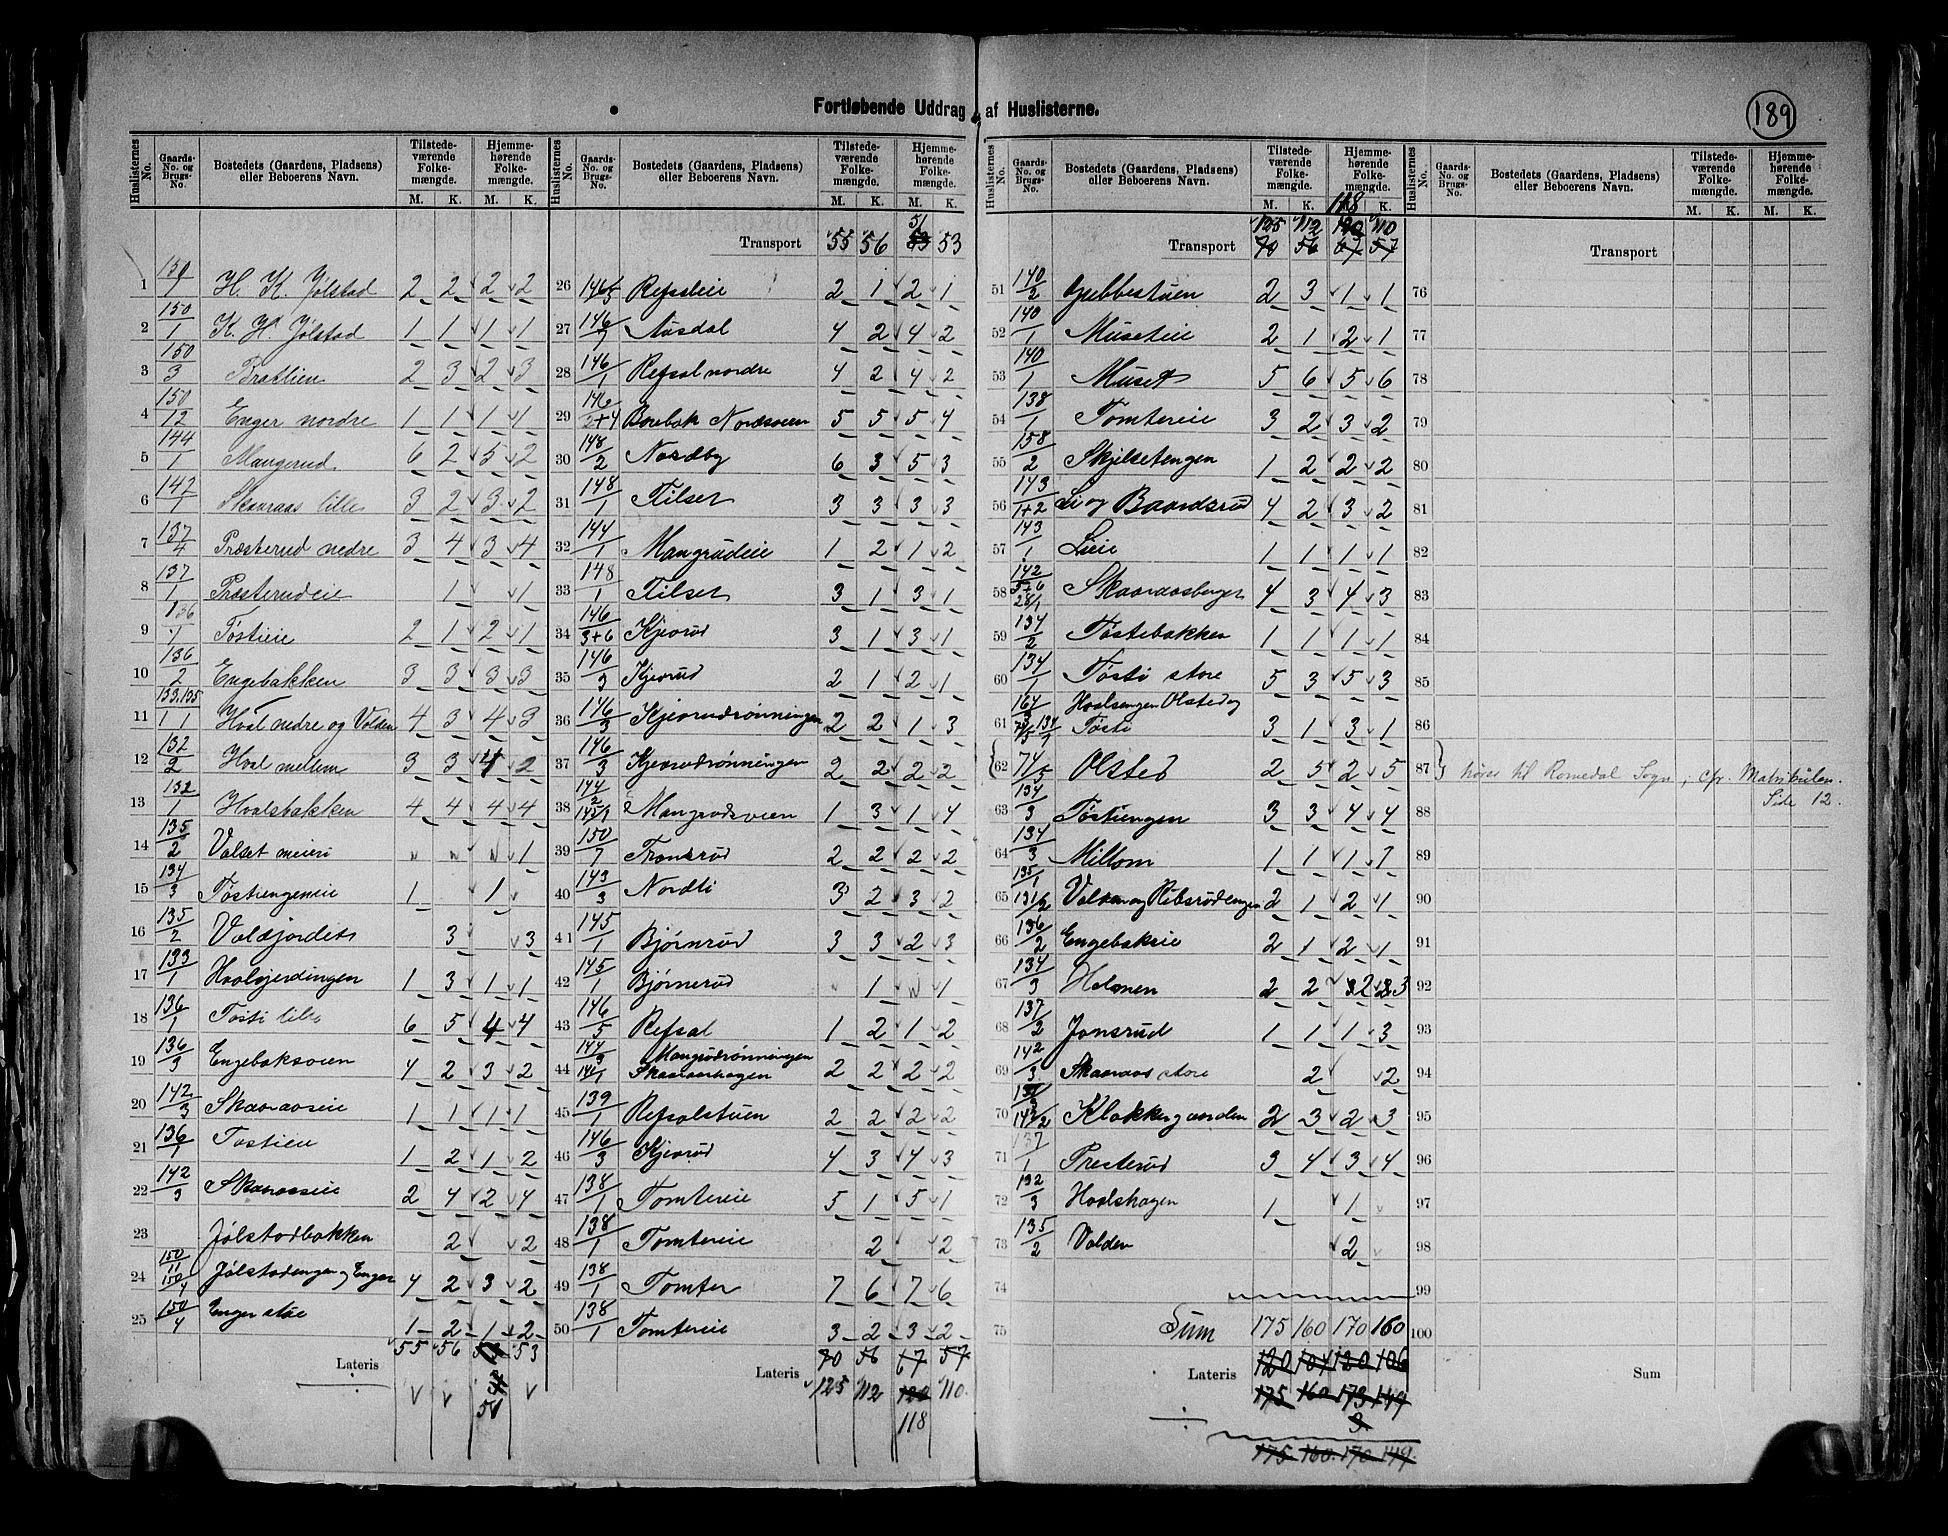 Fortløbende Uddrag af Huslisterne.
189
Huslisternes No. | Gaards-No. og Brugs-No. | Bostedets (Gaardens, Pladsens) eller Beboerens Navn. | Tilstedeværende Folkemængde. M. K. | Hjemmehørende Folkemængde. M. K.
1 | 150/1 | H. K. Jølstad | 2 | 2 | 2 | 2
2 | 150/1 | K. H. Jølstad | 1 | 1 | 1 | 1
3 | 150/3 | Bratlien | 2 | 3 | 2 | 3
4 | 150/12 | Enger nordre | 1 | 1 | 1 | 1
5 | 144/1 | Mangerud | 6 | 2 | 5 | 2
6 | 142/1 | Skaaraas lille | 3 | 2 | 3 | 2
7 | 137/4 | Præsterud nedre | 3 | 4 | 3 | 4
8 | 137/1 | Præsterudeie | 1 | 1
9 | 136/1 | Tøstieie | 2 | 1 | 2 | 1
10 | 136/2 | Engebakken | 3 | 3 | 3 | 3
11 | 133.135/1 1 | Hval nedre og Volden | 4 | 3 | 4 | 3
12 | 132/2 | Hval mellem | 3 | 3 | 4 | 2
13 | 132/1 | Hvalsbakken | 4 | 4 | 4 | 4
14 | 135/2 | Valset meieri | " | " | " | 1
15 | 134/3 | Tøstiengeneie | 1 | 1
16 | 135/2 | Voldjordets | 3 | 3
17 | 133/1 | Hvalsgjerdingen | 1 | 3 | 1 | 1
18 | 136/1 | Tøsti lille | 6 | 5 | 4 | 4
19 | 136/3 | Engebaksveen | 4 | 2 | 3 | 2
20 | 142/3 | Skaaraaseie | 1 | 1 | 1 | 1
21 | 136/1 | Tøstieie | 1 | 2 | 1 | 2
22 | 142/3 | Skaaraaseie | 2 | 4 | 2 | 4
23 | Jølstadbakken | 2 | 2
24 | 150/11 150/4 | Jølstadengen og Enger | 4 | 2 | 3 | 2
25 | 150/4 | Enger stue | 1 | 2 | 1 | 2
Lateris | 55 | 56 | 51 | 53
Transport | 55 | 56 | 51 | 53
26 | 146/5 | Refsaleie | 2 | 1 | 2 | 1
27 | 146/7 | Aasdal | 4 | 2 | 4 | 2
28 | 146/1 | Refsal nordre | 4 | 2 | 4 | 2
29 | 146/2+4 | Borebak Nordsveen | 5 | 5 | 5 | 4
30 | 148/2 | Nordby | 6 | 3 | 5 | 3
31 | 148/1 | Tilset | 3 | 3 | 3 | 3
32 | 144/1 | Mangrudeie | 1 | 2 | 1 | 2
33 | 148/1 | Tilset | 3 | 1 | 3 | 1
34 | 146/3+6 | Kjevrud | 3 | 1 | 3 | 1
35 | 146/3 | Kjevrud | 2 | 1 | 2 | 1
36 | 146/3 | Kjevrudrønningen | 2 | 2 | 1 | 3
37 | 146/3 | Kjevrudrønningen | 2 | 2 | 2 | 2
38 | 144/2 145/1 | Mangrudsveen | 1 | 3 | 1 | 4
39 | 150/7 | Tronsrud | 2 | 2 | 2 | 2
40 | 143/3 | Nordli | 3 | 2 | 3 | 2
41 | 145/1 | Bjørnrud | 3 | 3 | 2 | 3
42 | 145/1 | Bjørnerud | 1 | " | 1
43 | 146/5 | Refsal | 1 | 2 | 1 | 2
44 | 144/3 141/1 | Mangrudrønningen Skaaraashagen | 2 | 2 | 2 | 2
45 | 139/1 | Refsalstuen | 2 | 2 | 2 | 2
46 | 146/3 | Kjevrud | 4 | 3 | 4 | 3
47 | 138/1 | Tomtereie | 5 | 1 | 5 | 1
48 | 138/1 | Tomtereie | 2 | 2
49 | 138/1 | Tomter | 7 | 6 | 7 | 6
50 | 138/1 | Tomtereie | 3 | 2 | 3 | 2
Lateris | 70 | 56 | 67 | 57
125 | 112 | 120 | 110
118
Transport | 125 | 112 | 118 | 110
70 | 56 | 67 | 57
51 | 140/2 | Gubbestuen | 2 | 3 | 1 | 1
52 | 140/1 | Museteie | 2 | 1 | 2 | 1
53 | 140/1 | Muset | 5 | 6 | 5 | 6
54 | 138/1 | Tomtereie | 3 | 2 | 3 | 2
55 | 158/2 | Skjelsetengen | 1 | 2 | 2 | 2
56 | 143/1+2 | Li og Baardsrud | 4 | 2 | 3 | 2
57 | 143/1 | Lieie | 1 | 1 | 1 | 1
58 | 142/5+6 28/1 | Skaaraasberget | 4 | 3 | 4 | 3
59 | 134/2 | Tøstebakken | 1 | 1 | 1 | 1
60 | 134/1 | Tøsti store | 5 | 3 | 5 | 3
61 | Hvalsengen Olsted og Tøsti | 3 | 1 | 3 | 1
62 | 74/5 | Olsted | 2 | 5 | 2 | 5
hører til Romedal Sogn, cfr. Matrikulen Side 12.
63 | 134/3 | Tøstiengen | 3 | 3 | 4 | 4
64 | 134/3 | Millom | 1 | 1 | 1 | 1
65 | 135/1 131/2 | Volden og Ribsrudengen | 2 | 1 | 2 | 1
66 | 136/2 | Engebakeie | 2 | 1 | 2 | 1
67 | 134/3 | Holmen | 2 | 2 | 2 | 3
68 | 137/2 | Jonsrud | 1 | 1 | 1 | 3
69 | 142/3 | Skaaraas store | 2 | 2
70 | 143/2 | Klokkergaarden | 2 | 3 | 2 | 3
71 | 137/1 | Presterud | 3 | 4 | 3 | 4
72 | 132/3 | Hvalshagen | 1 | 1
73 | 135/2 | Volden | 2
74
75 | Sum | 175 | 160 | 170 | 160
Lateris | 120 | 104 | 120 | 106
175 | 160 | 173 | 149
3
175 | 160 | 170 | 149
Transport
76
77
78
79
80
81
82
83
84
85
86
87
88
89
90
91
92
93
94
95
96
97
98
99
100
Sum